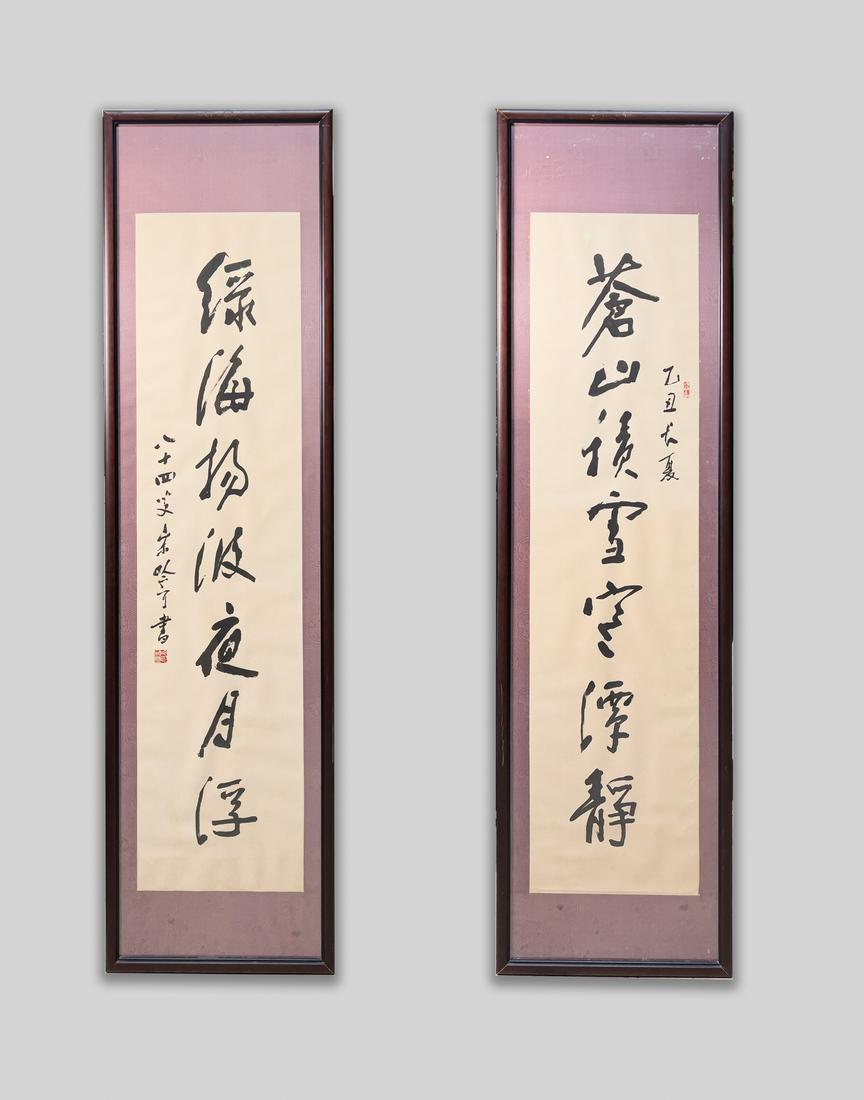 乙丑长夏
蒼山積雪寒潭靜
綠海揚波夜月浮
八十四叟宋吟可書